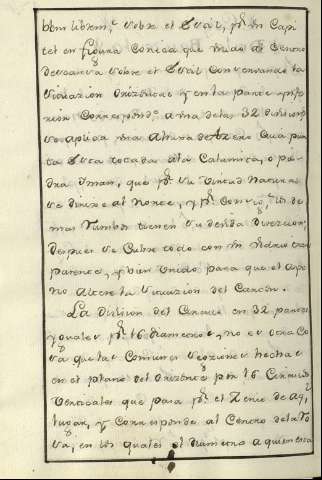 bien librem.te sobre el Exál, p.r un Capi
tel en figura Conica que unido al Centro
descansa sobre el Exál conservando la
situazion Orizontal y en la parte supe
rior Correspond.te a una delas 32 divisions
se aplica una Aguja de Azero Cuia pun
ta esta tocada ala Calamita, o pie
dra Iman, que p.r su Virtud Natural
se dirixe al Norte, y p.r consig.te los de
mas rumbos tienen su devida direczion;
despues se Cubre todo con un Vidrio tras
parente, y bien Unido para que el ayre
no altere la situazion del Canton.
La division del Circulo en 32 partes
yguales p.r 16 diametros, no es otra Co
sa que las Comunes secziones hechas
en el plano del Orizonte p.r los 16 Circulos
Verticales que pasa p.r el Zenit de aq.l
lugar, y Corresponde al Centro dela Ro
sa, en los quales el diametro a quien esta